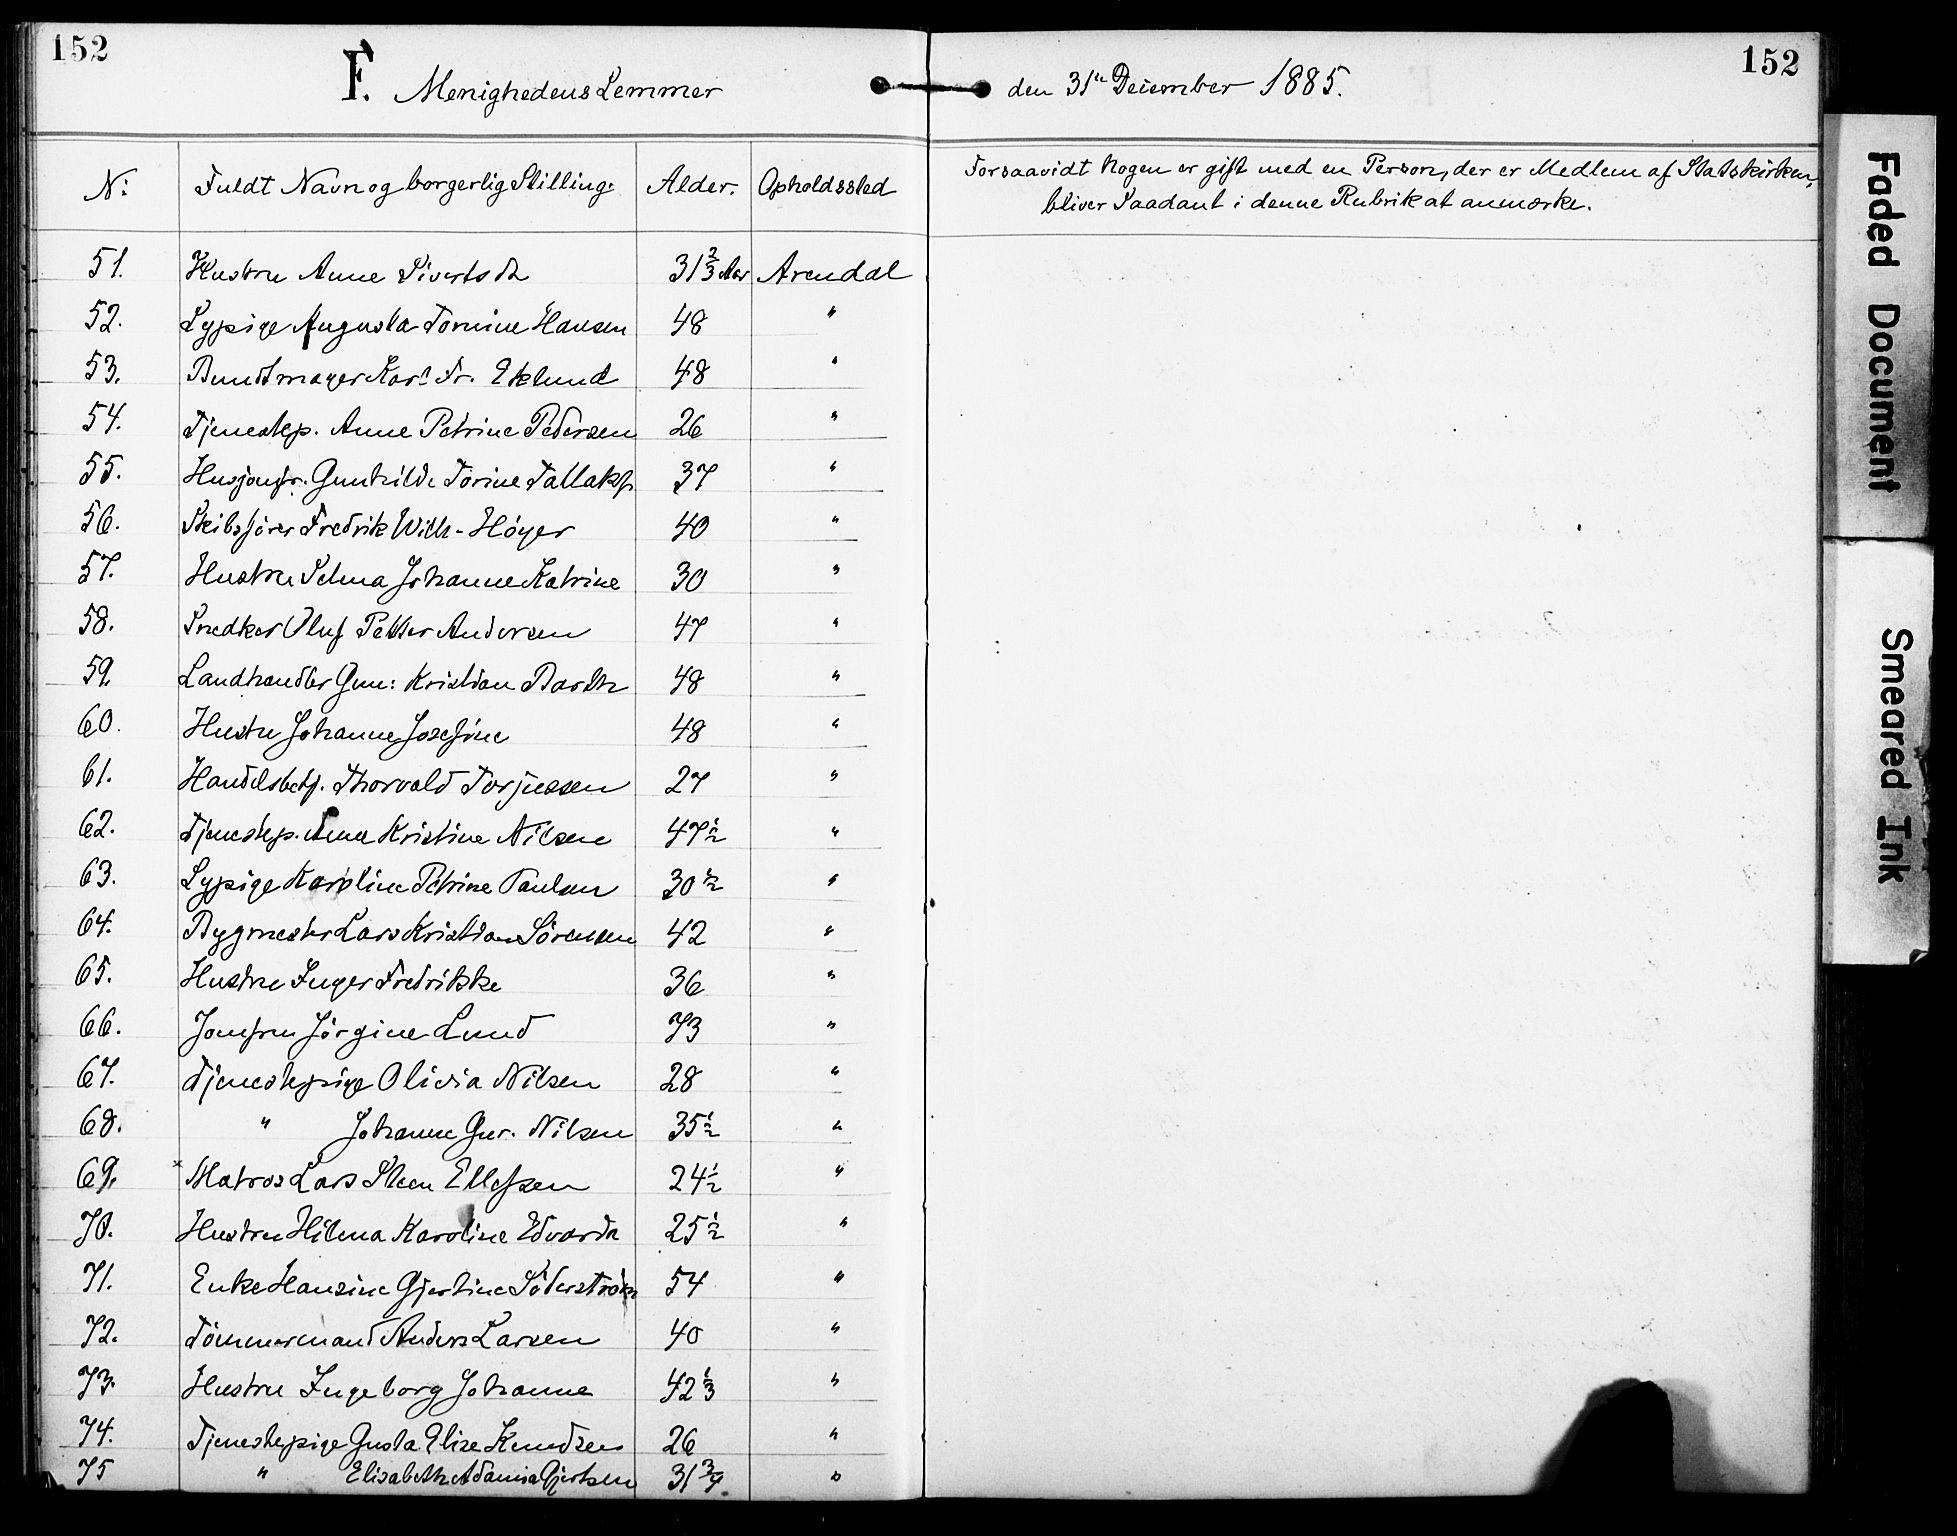 152
152
F. Menighedens Lemmer den 31te December 1885.
No: Fuldt Navn og borgerlig Stilling: Alder. Opholdssted
Forsaavidt Nogen er gift med en Person, der er Medlem af Statskirken,
bliver Saadant i denne Rubrik at anmærke.
51. Hustru Anne Sivertsdr 31 2/3 Aar Arendal
52. Sypige Augusta Tomine Hansen 48 "
53. Buntmager Karl Fr. Eklund 48 "
54. Tjenestep. Anne Petrine Pedersen 26 "
55. Husjomfr. Gunhilde Torine Tallaks. 37 "
56. Skibsfører Fredrik Wilh. Höyer 40 "
57. Hustru Selma Johanne Katrine 30 "
58. Snedker Oluf Petter Andersen 47 "
59. Landhandler Gun: Kristian Barth 48 "
60. Hustru Johanne Josefine 48 "
61. Handelsbetj. Thorvald Torjussen 27 "
62. Tjenestep. Anne Kristine Nilsen 47 1/2 "
63. Sypige Karoline Petrine Paulsen 30 1/2 "
64. Bygmester Lars Kristian Sörensen 42 "
65. Hustru Inger Fredrikke 36 "
66. Jomfru Jörgine Lund 73 "
67. Tjenestepige Olivia Nilsen 28 "
68. " Johanne Gur. Nilsen 35 1/2 "
69. × Matros Lars Steen Ellefsen 24 1/2 "
70. Hustru Hilma Karoline Edvarda 25 1/2 "
71. Enke Hansine Gjertine Söderström 54 "
72. Tömmermand Anders Larsen 40 "
73. Hustru Ingeborg Johanne 42 1/3 "
74. Tjenestepige Gusta Elise Knudsen 26 "
75 " Elisabeth Adamia Gjertsen 31 3/4. "
Faded Document
Smeared Ink